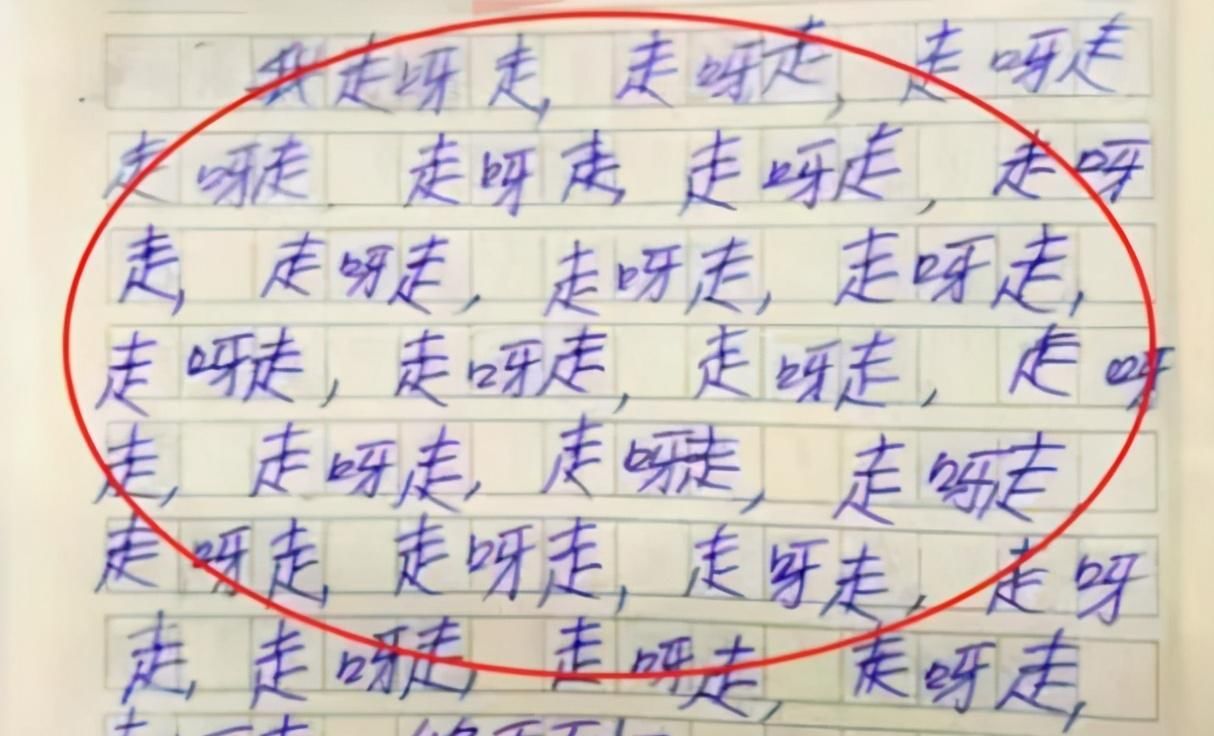 我走呀走,走呀走,走呀走
走呀走 走呀走,走呀走,走呀
走,走呀走,走呀走,走呀走,
走呀走,走呀走,走呀走,走呀
走,走呀走,走呀走,走呀走
走呀走,走呀走,走呀走,走呀
走,走呀走,走呀走,走呀走,